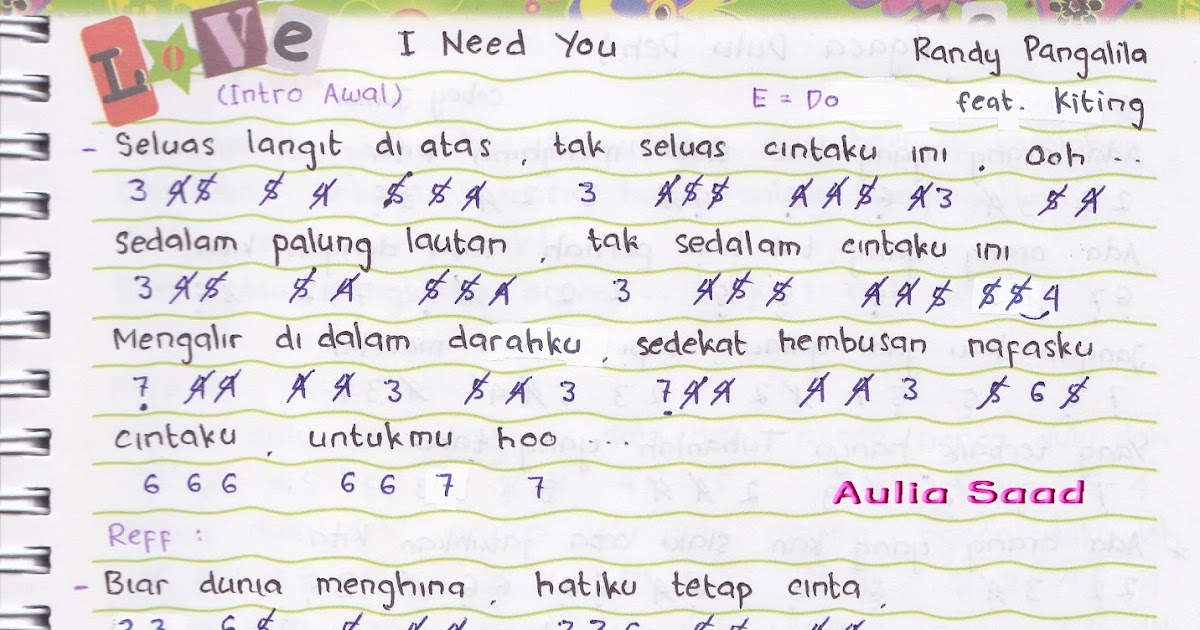 Love I Need You Randy Pangalila
(Intro Awal) E = Do feat. Kiting
- Seluas langit di atas, tak seluas cintaku ini, Ooh ...
3 4̸ 5̸ 5̸ 4̸ 5̸ 5̸ 4̸ 3 4̸ 5̸ 5̸ 4̸ 4̸ 5̸ 4̸ 3 5̸ 4̸
Sedalam palung lautan, tak sedalam cintaku ini
3 4̸ 5̸ 5̸ 4̸ 5̸ 5̸ 4̸ 3 4̸ 5̸ 5̸ 4̸ 4̸ 5̸ 5̸ 5̸ 4
Mengalir di dalam darahku, sedekat hembusan nafasku
7̣ 4̸ 4̸ 4̸ 4̸ 3 5̸ 4̸ 3 7̣ 4̸ 4̸ 4̸ 4̸ 3 5̸ 6 5̸
Cintaku, untukmu hoo ...
6 6 6 6 6 7 7
Aulia Saad
Reff :
- Biar dunia menghina, hatiku tetap cinta,